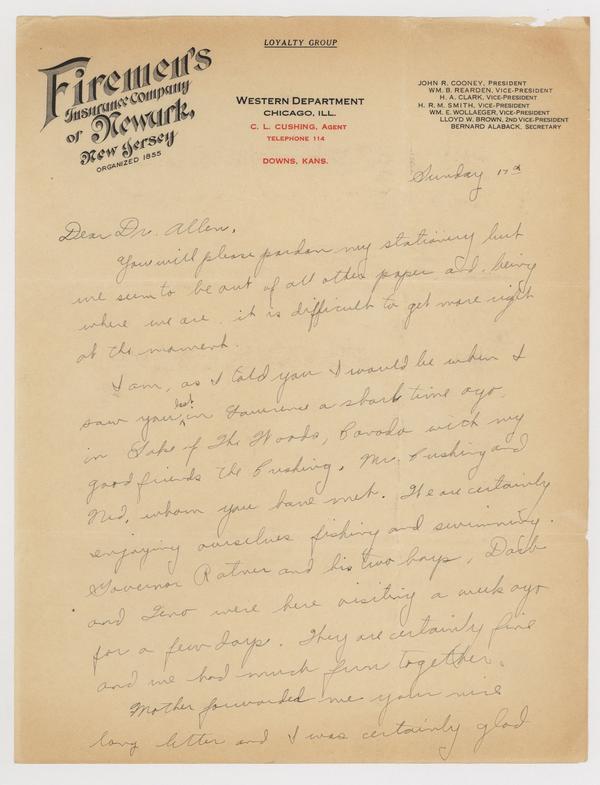 LOYALTY GROUP
Firemen's
Insurance Company
of Newark,
New Jersey
ORGANIZED 1855
WESTERN DEPARTMENT
CHICAGO, ILL.
C. L. CUSHING, AGENT
TELEPHONE 114
DOWNS, KANS.
JOHN R. COONEY, PRESIDENT
WM. B. REARDEN, VICE-PRESIDENT
H. A. CLARK, VICE-PRESIDENT
H. R. M. SMITH, VICE-PRESIDENT
WM. E. WOLLAEGER, VICE-PRESIDENT
LLOYD W. BROWN, 2ND VICE-PRESIDENT
BERNARD ALABACK, SECRETARY
Sunday 17th
Dear Dr. Allen,
You will please pardon my stationery but
we seem to be out of all other paper and, being
where we are, it is difficult to get more right
at the moment.
I am, as I told you I would be when I
saw you last in Lawrence a short time ago,
in Lake of The Woods, Canada with my
good friends the Cushings, Mr. Cushing and
Ned, whom you have met. We are certainly
enjoying ourselves fishing and swimming.
Governor Ratner and his two boys,
and were here visiting a week ago
for a few days. They are certainly fine
and we had much fun together.
Mother forwarded me your nice
long letter and I was certainly glad